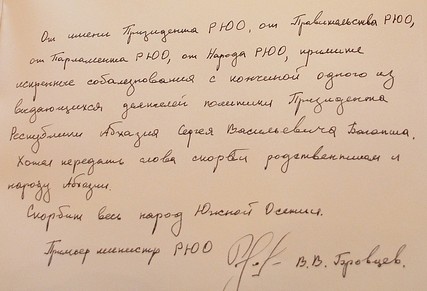 От имени Президента РЮО, от Правительства РЮО,
от Парламента РЮО, от Народа РЮО, примите
искренние соболезнования с кончиной одного из
выдающихся деятелей политики Президента
Республики Абхазия Сергея Васильевича Багапша.
Хотел передать слова скорби родственникам и
народу Абхазии.
Скорбит весь народ Южной Осетии.
Премьер министр РЮО В.В. Бровцев.